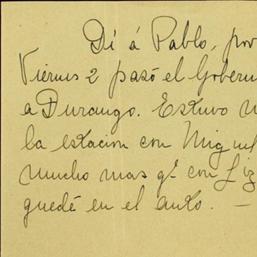 Dí á Pablo, por
Viernes 2 pasó el Gobern
a Durango. Estuvo
la estacion con Miguel
mucho mas qe con Liz
quedé en el auto. —